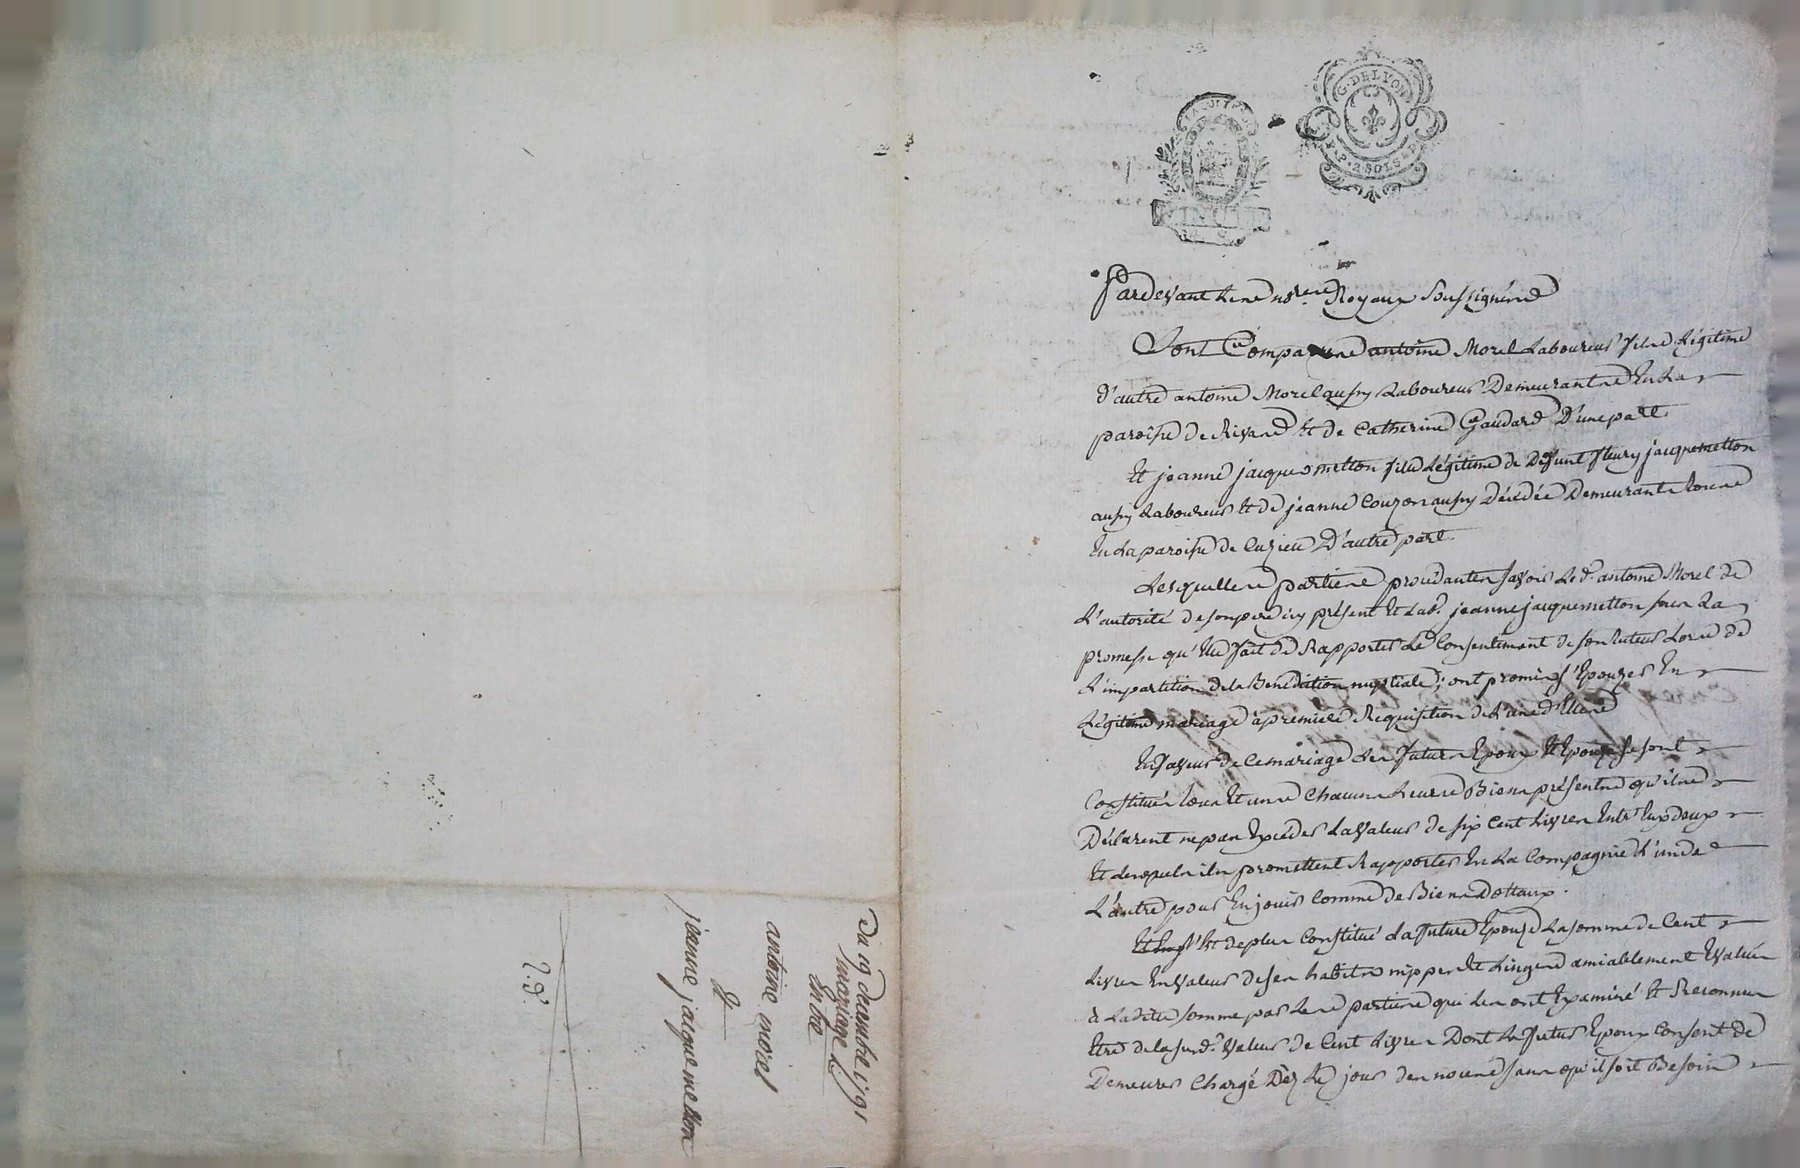 G. DE LYON
P.P. 2 SOLS 4 D
Pardevant les nores Royaux soussignés
Sont Comparus antoine Morel Laboureur fils Légitime
d'autre antoine Morel aussy Laboureur Demeurants En La
paroisse de Rivas Et de Catherine Gaudard D'une part
Et jeanne jacquemetton fille Légitime de Deffunt fleury jacquemetton
aussy Laboureur Et de jeanne Couzon aussy Décédée Demeurante
En La paroisse de Cuzieu D'autre part.
Lesquelles parties procédantes savoir Le d. antoine Morel de
L'autorité de son pere icy présent Et Lad. jeanne jacquemetton sous La
promesse qu'Elle fait de Rapporter Le Consentement de son tuteur Lors de
L'impartition de la Bénédiction nuptiale; ont promis s'Epouzer En
Légitime mariage à premiere Requisition de L'une d'Elles
En faveur de Ce mariage Les futurs Epoux Et Epouze se sont
Constitués tous Et uns Chacuns Leurs Biens présents qu'ils
Déclarent ne pas Excéder La valeur de six Cent Livres Entr'Eux deux
Et Lesquels ils promettent Rapporter En La Compagnie L'un de
L'autre pour En jouir Comme de Biens Dottaux.
Et de plus Constitué La future Epouze La somme de Cent
Livres En valeur de ses habits nippes Et Linges amiablement Evalués
à Ladite somme par Les parties qui Les ont Examiné Et Reconnus
Etre de la susd. valeur de Cent Livres Dont Le futur Epoux Consent de
Demeurer Chargé Dez Le jour des noces sans qu'il soit Besoin
Du 19 decembre 1791
mariage
Entre
antoine morel
Et
jeanne jacquemetton